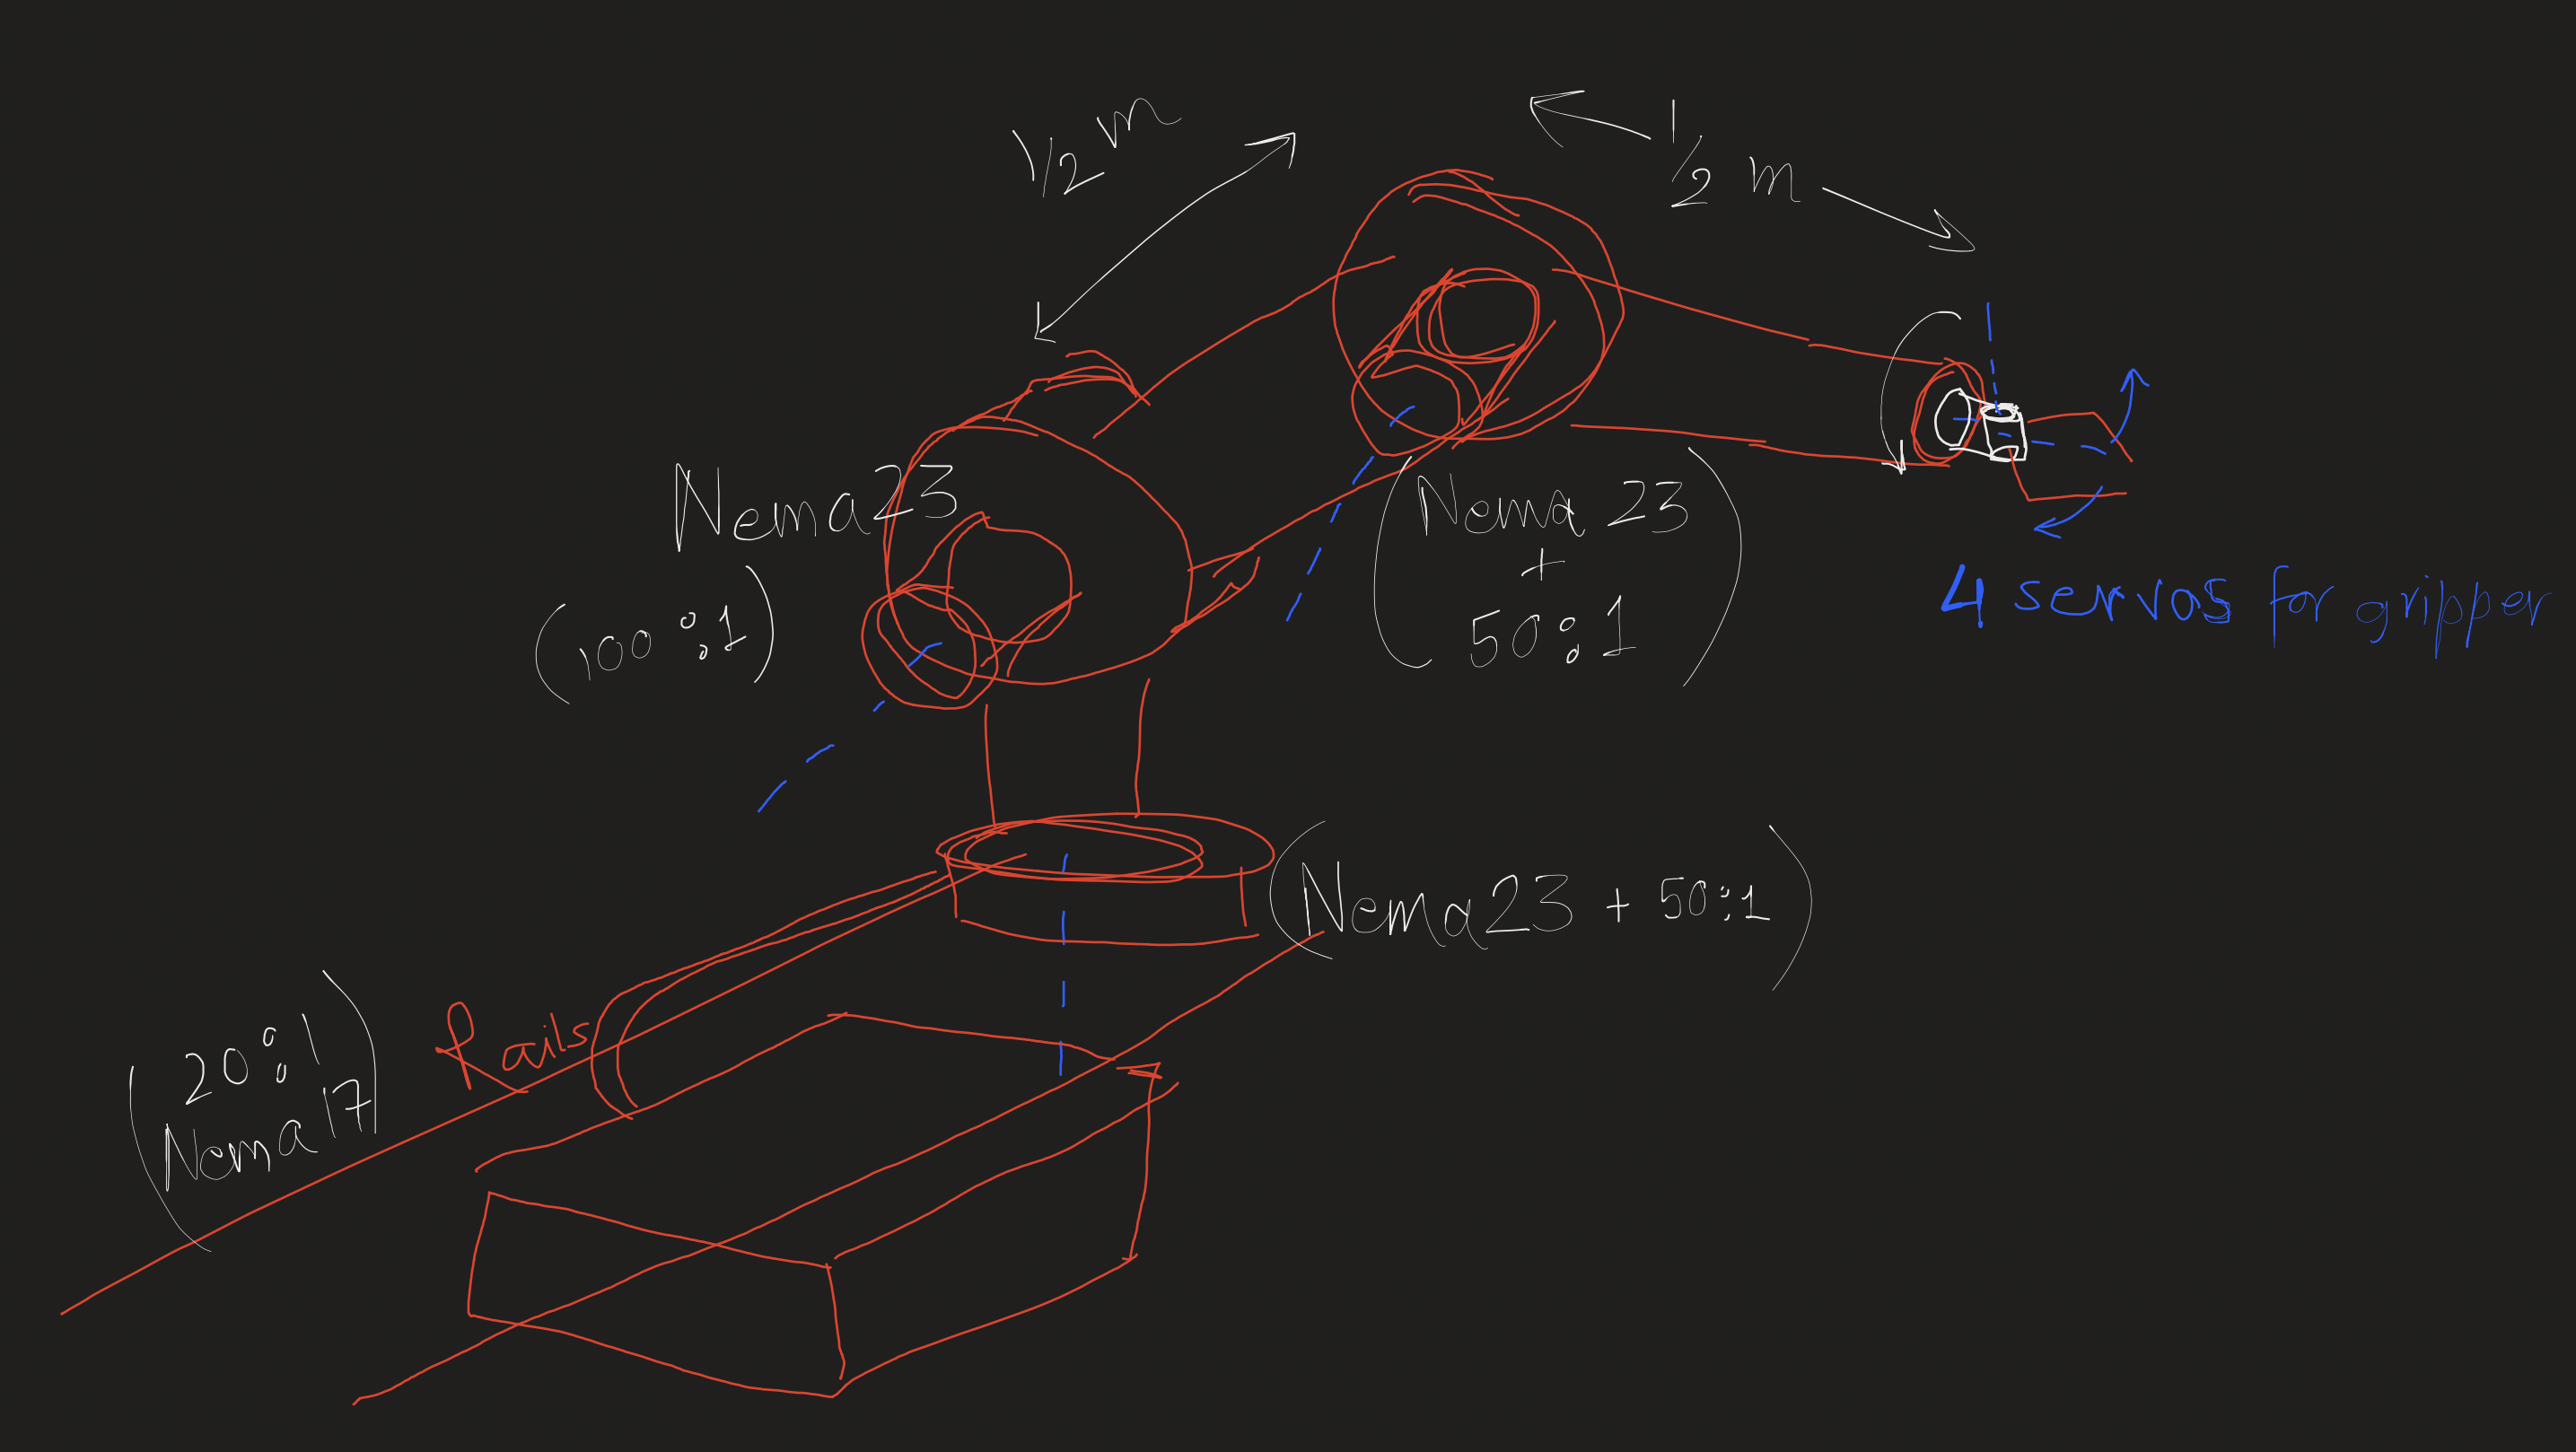 1/2 m
1/2 m
Nema 23
(100:1)
(Nema 23
+
50:1)
4 servos for gripper
(Nema 23 + 50:1)
Rails
(20:1
Nema 17)